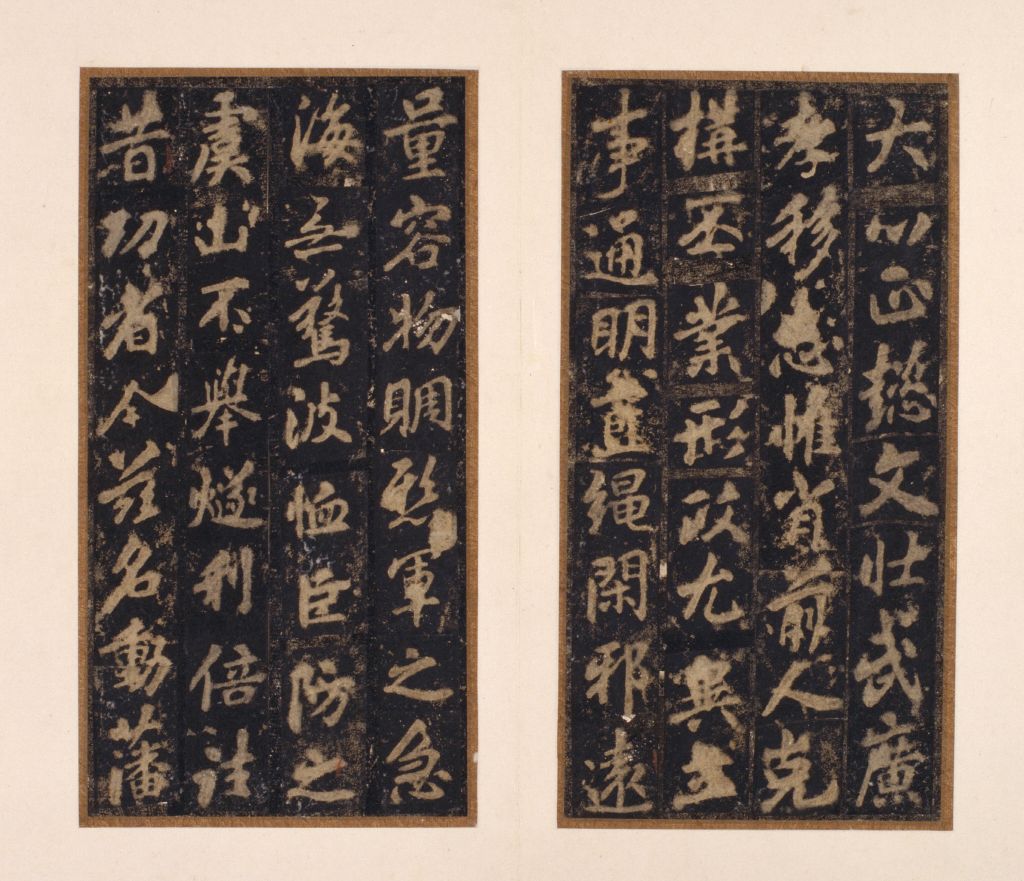 大以正懿文壯武廣
孝移忠惟省前人克
構丕業形政尤異立
事通明直繩閑邪遠
量容物賙懸軍之急
海無驚波恤巨防之
虞山不舉燧利倍往
昔功著今茲名動藩